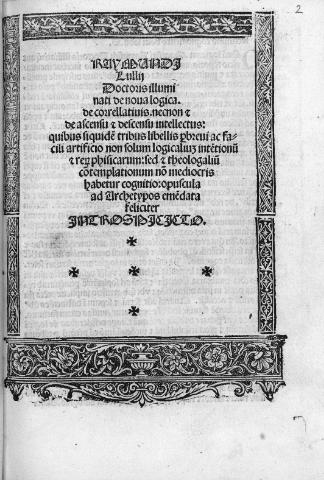 2
RAYMUNDI
Lullij
Doctoris illumi
nati de noua logica.
de correllatiuis. necnon ⁊
de ascensu ⁊ descensu intellectus:
quibus siquidē tribus libellis pbreui ac fa-
cili artificio non solum logicaliuꝫ intētionū
⁊ reꝝ phisicarum: sed ⁊ theologaliū
cōtemplationum nō mediocris
habetur cognitio: opuscula
ad Archetypos emēdata
feliciter
INTROSPICITO.